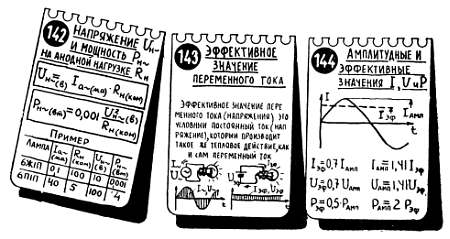 142
НАПРЯЖЕНИЕ Uн~
И МОЩНОСТЬ Pн~
НА АНОДНОЙ НАГРУЗКЕ Rн
Uн~(в) = Ia~(ma) · Rн(ком)
Pн~(вт) = 0,001 U²н~(в) / Rн(ком)
ПРИМЕР
ЛАМПА Ia~(ma) Rн(ком) Uн~(в) Pн~(вт)
6Ж1П 0,1 100 10 0,001
6П1П 40 5 100 4
143
ЭФФЕКТИВНОЕ
ЗНАЧЕНИЕ
ПЕРЕМЕННОГО ТОКА
ЭФФЕКТИВНОЕ ЗНАЧЕНИЕ ПЕРЕ
МЕННОГО ТОКА (НАПРЯЖЕНИЯ) ЭТО
УСЛОВНЫЙ ПОСТОЯННЫЙ ТОК (НАП
РЯЖЕНИЕ), КОТОРЫЙ ПРОИЗВОДИТ
ТАКОЕ ЖЕ ТЕПЛОВОЕ ДЕЙСТВИЕ, КАК
И САМ ПЕРЕМЕННЫЙ ТОК
I~ Iэф
U~
I, U
t
t
144
АМПЛИТУДНЫЕ И
ЭФФЕКТИВНЫЕ
ЗНАЧЕНИЯ I, U и P
I
Iэф Iамп
t
Iэф=0,7 Iамп Iамп=1,41 Iэф
Uэф=0,7 Uамп Uамп=1,41 Uэф
Pэф=0,5·Pамп Pамп=2·Pэф